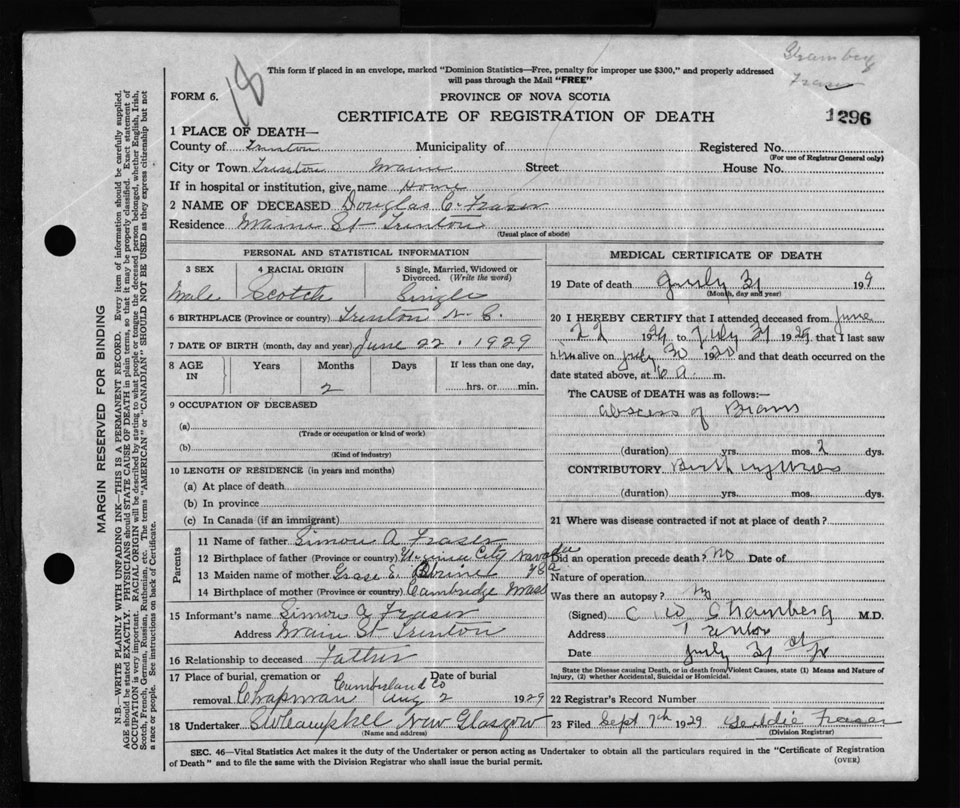 18
This form if placed in an envelope, marked "Dominion Statistics—Free, penalty for improper use $300," and properly addressed
will pass through the Mail "FREE"
Fraser
FORM 6.
PROVINCE OF NOVA SCOTIA
CERTIFICATE OF REGISTRATION OF DEATH
1296
MARGIN RESERVED FOR BINDING
N.B.—WRITE PLAINLY WITH UNFADING INK—THIS IS A PERMANENT RECORD. Every item of information should be carefully supplied.
AGE should be stated EXACTLY. PHYSICIANS should STATE CAUSE OF DEATH in plain terms, so that it may be properly classified. Exact statement of
OCCUPATION is very important. RACIAL ORIGIN will be described by stating to what people or tongue the deceased person belonged, whether English, Irish,
Scotch, French, German, Russian, Ruthenian, etc. The terms "AMERICAN" or "CANADIAN" SHOULD NOT BE USED as they express citizenship but not
a race or people. See instructions on back of Certificate.
1 PLACE OF DEATH—
County of Trenton Municipality of Registered No.
(For use of Registrar General only)
City or Town Trenton Maine Street House No.
If in hospital or institution, give name Home
2 NAME OF DECEASED Douglas C. Fraser
Residence Maine St Trenton
(Usual place of abode)
PERSONAL AND STATISTICAL INFORMATION
3 SEX 4 RACIAL ORIGIN 5 Single, Married, Widowed or Divorced. (Write the word)
Male Scotch Single
6 BIRTHPLACE (Province or country) Trenton N. S.
7 DATE OF BIRTH (month, day and year) June 22, 1929
8 AGE IN Years Months Days If less than one day,
2 hrs. or min.
9 OCCUPATION OF DECEASED
(a)
(Trade or occupation or kind of work)
(b)
(Kind of industry)
10 LENGTH OF RESIDENCE (in years and months)
(a) At place of death
(b) In province
(c) In Canada (if an immigrant)
Parents
11 Name of father Simon A Fraser
12 Birthplace of father (Province or country) Virginia City Navada
13 Maiden name of mother Grase E.
14 Birthplace of mother (Province or country) Cambridge Mass
15 Informant's name Simon A Fraser
Address Main St Trenton
16 Relationship to deceased Father
17 Place of burial, cremation or removal Date of burial
Chapman Cumberland Co Aug 2 1929
18 Undertaker Campbell New Glasgow
(Name and address)
MEDICAL CERTIFICATE OF DEATH
19 Date of death July 31 199
(Month, day and year)
20 I HEREBY CERTIFY that I attended deceased from June
22 1929 to July 31 1929, that I last saw
him alive on July 30 19 and that death occurred on
date stated above, at 6 a. m.
The CAUSE of DEATH was as follows:—
abscess of Brain
(duration) yrs. mos. 2 dys.
CONTRIBUTORY Birth injuries
(duration) yrs. mos. dys.
21 Where was disease contracted if not at place of death?
Did an operation precede death? No Date of
Nature of operation
Was there an autopsy? No
(Signed) C W Stramberg M.D.
Address Trenton
Date July 31st
State the Disease causing Death, or in death from Violent Causes, state (1) Means and Nature of
Injury, (2) whether Accidental, Suicidal or Homicidal.
22 Registrar's Record Number
23 Filed Sept 7th 1929 Fraser
(Division Registrar)
SEC. 46—Vital Statistics Act makes it the duty of the Undertaker or person acting as Undertaker to obtain all the particulars required in the "Certificate of Registration
of Death" and to file the same with the Division Registrar who shall issue the burial permit.
(OVER)